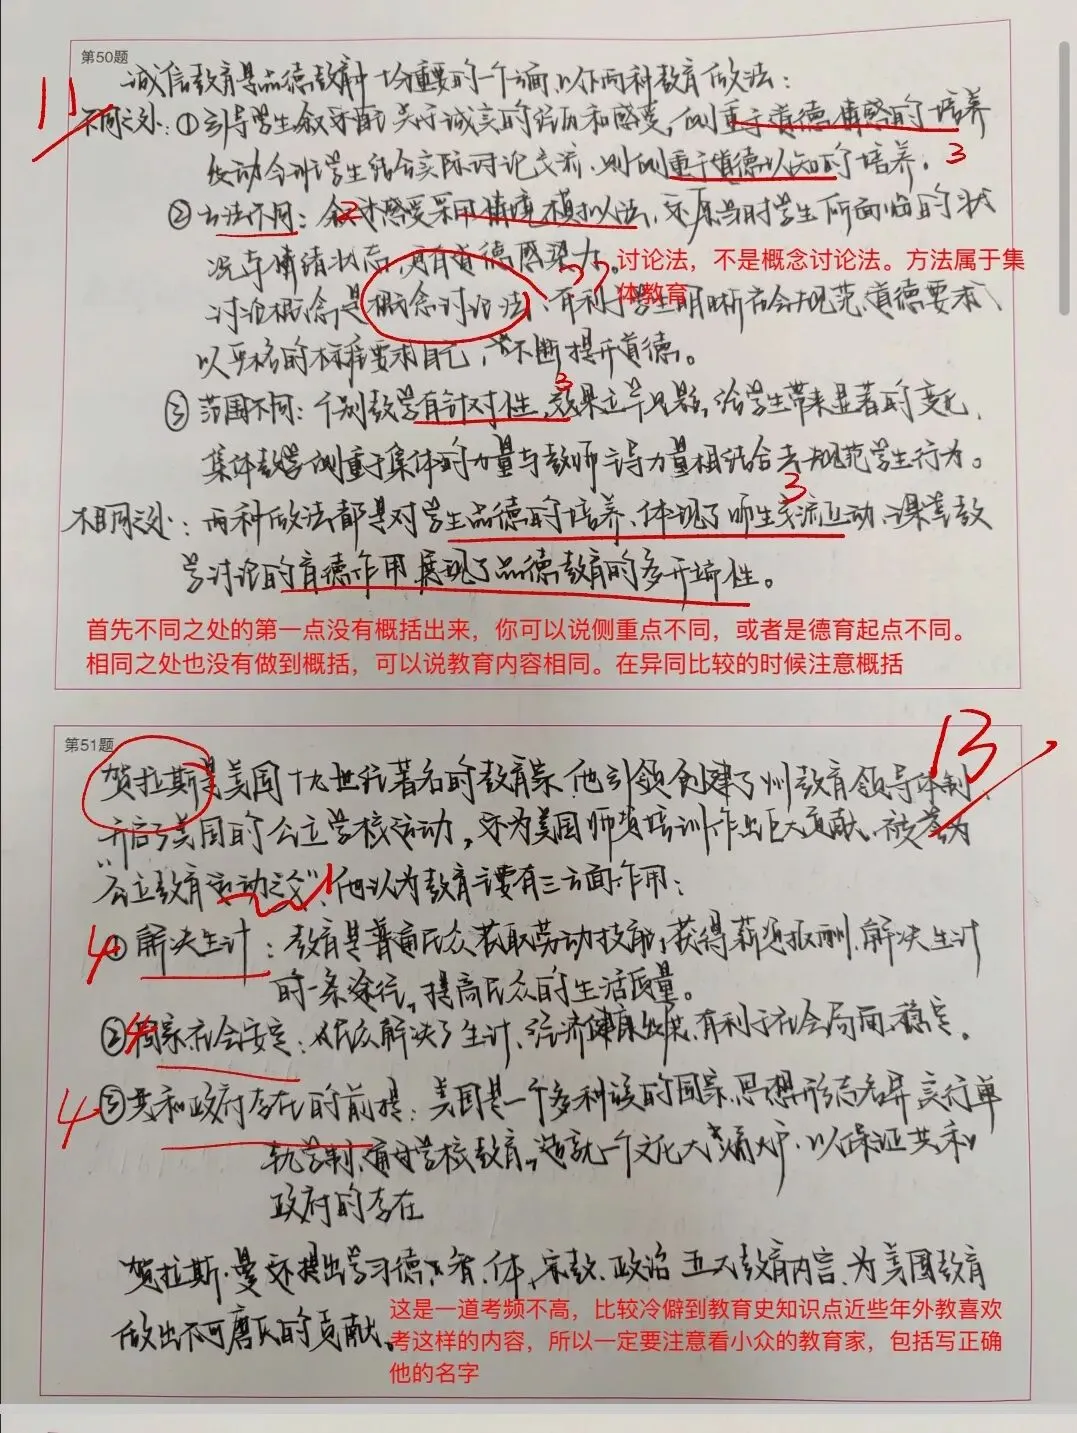 第50题
11
诚信教育是品德教育中十分重要的一个方面,以下两种教育做法:
不同之处:①引导学生叙述自己关于诚实的经历和感受,侧重于道德情感的培养
3
发动全班学生结合实际讨论交流,则侧重于道德认知的培养。
②方法不同:叙述感受采用情境模拟法,还原当时学生所面临的状
况与情绪状态,更有道德感染力。
讨论法,不是概念讨论法。方法属于集
体教育
讨论概念是概念讨论法、有利于学生明晰社会规范、道德要求,
以严格的标准要求自己,不断提升道德。
3
③范围不同:个别教学有针对性,效果立竿见影,给学生带来显著的变化,
集体教学侧重于集体的力量与教师主导力量相结合去规范学生行为。
3
相同之处:两种做法都是对学生品德的培养、体现了师生交流互动、课堂教
学讨论的育德作用展现了品德教育的多开端性。
首先不同之处的第一点没有概括出来,你可以说侧重点不同,或者是德育起点不同。
相同之处也没有做到概括,可以说教育内容相同。在异同比较的时候注意概括
第51题
13
贺拉斯是美国十九世纪著名的教育家,他引领创建了州教育领导体制、
开启了美国的公立学校运动,还为美国师资培训作出巨大贡献、被誉为
“公立教育运动之父”,他认为教育主要有三方面作用:
1
4
①解决生计:教育是普通民众获取劳动技能,获得薪资报酬,解决生计
的一条途径,提高民众的生活质量。
4
②国家社会安定:人民众解决了生计、经济健康发展,有利于社会局面稳定。
4
③共和政府存在的前提:美国是一个多种族的国家,思想形态各异,实行单
轨学制,通过学校教育,造就一个文化大熔炉,以保证共和
政府的存在
贺拉斯·曼还提出学习德、智、体、宗教、政治五大教育内容、为美国教育
做出不可磨灭的贡献。
这是一道考频不高,比较冷僻到教育史知识点近些年外教喜欢
考这样的内容,所以一定要注意看小众的教育家,包括写正确
他的名字